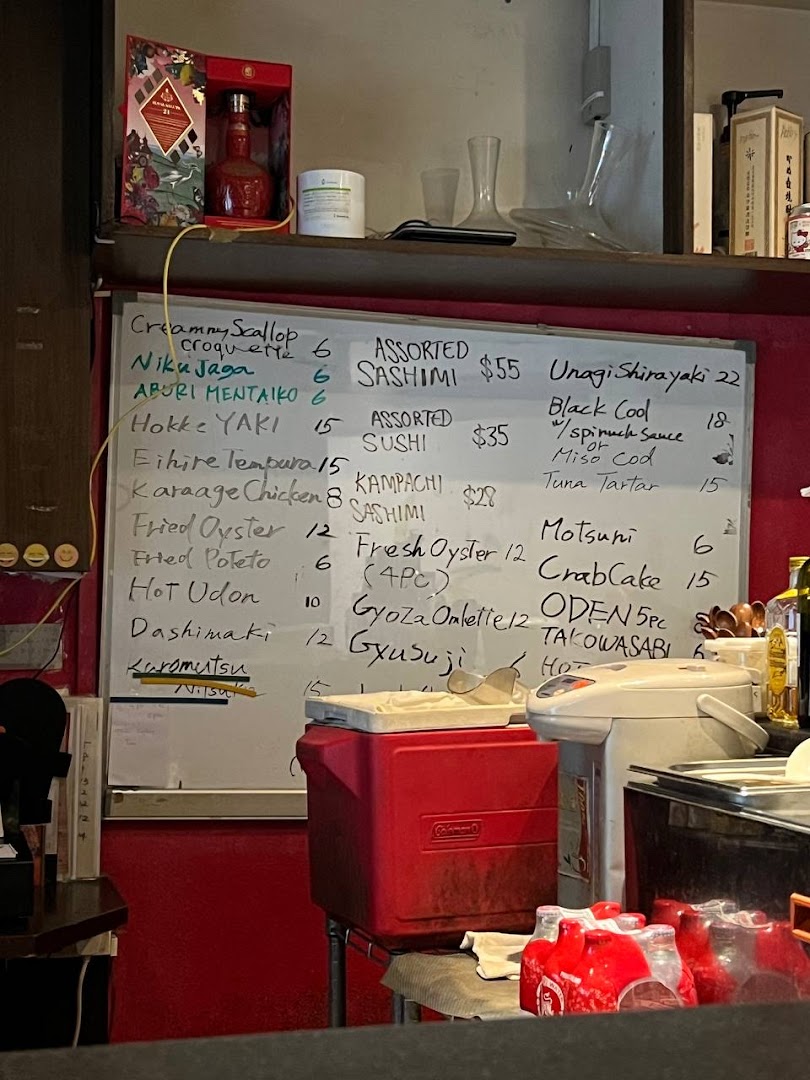 Creammy Scallop
croquette 6
Niku Jaga 6
ABURI MENTAIKO 6
Hokke YAKI 15
Eihire Tempura 15
Karaage Chicken 8
Fried Oyster 12
Fried Poteto 6
HOT Udon 10
Dashimaki 12
Kuromutsu
Nitsuke 15
ASSORTED
SASHIMI $55
ASSORTED
SUSHI $35
KAMPACHI
SASHIMI $28
Fresh Oyster 12
(4Pc)
Gyoza Omlette 12
Gyusuji 6
Unagi Shirayaki 22
Black Cod 18
w/ spinach sauce
or
Miso Cod
Tuna Tartar 15
Motsuni 6
Crab Cake 15
ODEN 5pc 8
TAKOWASABI 6
HOT
21
Coleman